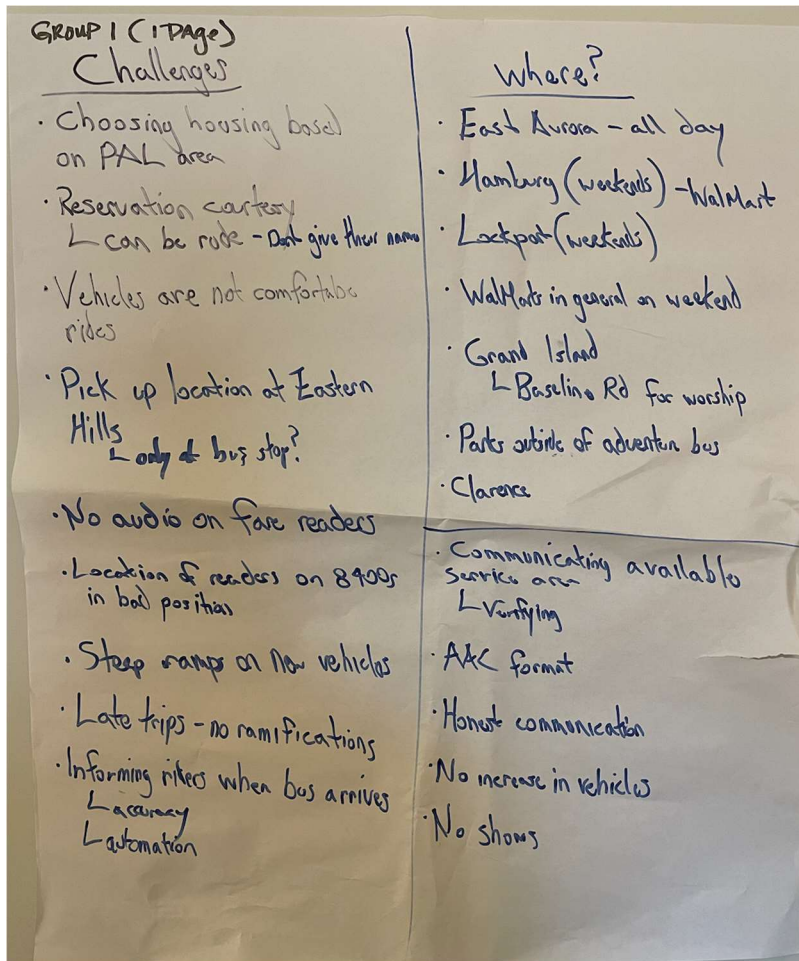 GROUP 1 (1 PAge)
Challenges
· Choosing housing based
on PAL area
· Reservation courtesy
└ can be rude - Dont give their name
· Vehicles are not comfortabe
rides
· Pick up location at Eastern
Hills
└ only at bus stop?
· No audio on fare readers
· Location of readers on 8400s
in bad position
· Steep ramps on new vehicles
· Late trips - no ramifications
· Informing riders when bus arrives
└ accuracy
└ automation
Where?
· East Aurora - all day
· Hamburg (weekends) - WalMart
· Lockport (weekends)
· WalMarts in general on weekend
· Grand Island
└ Baseline Rd for worship
· Parks outside of adventure bus
· Clarence
· Communicating available
service area
└ Verifying
· AAC format
· Honest communication
· No increase in vehicles
· No shows